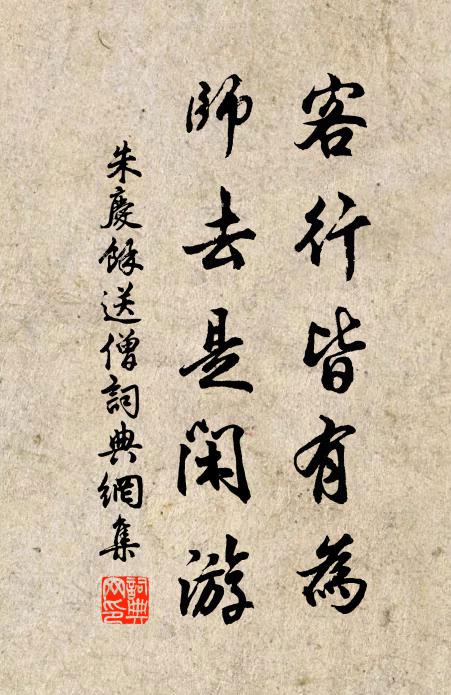 客行皆有為
師去是閑游
朱慶餘送僧詞典網集
詞典網印